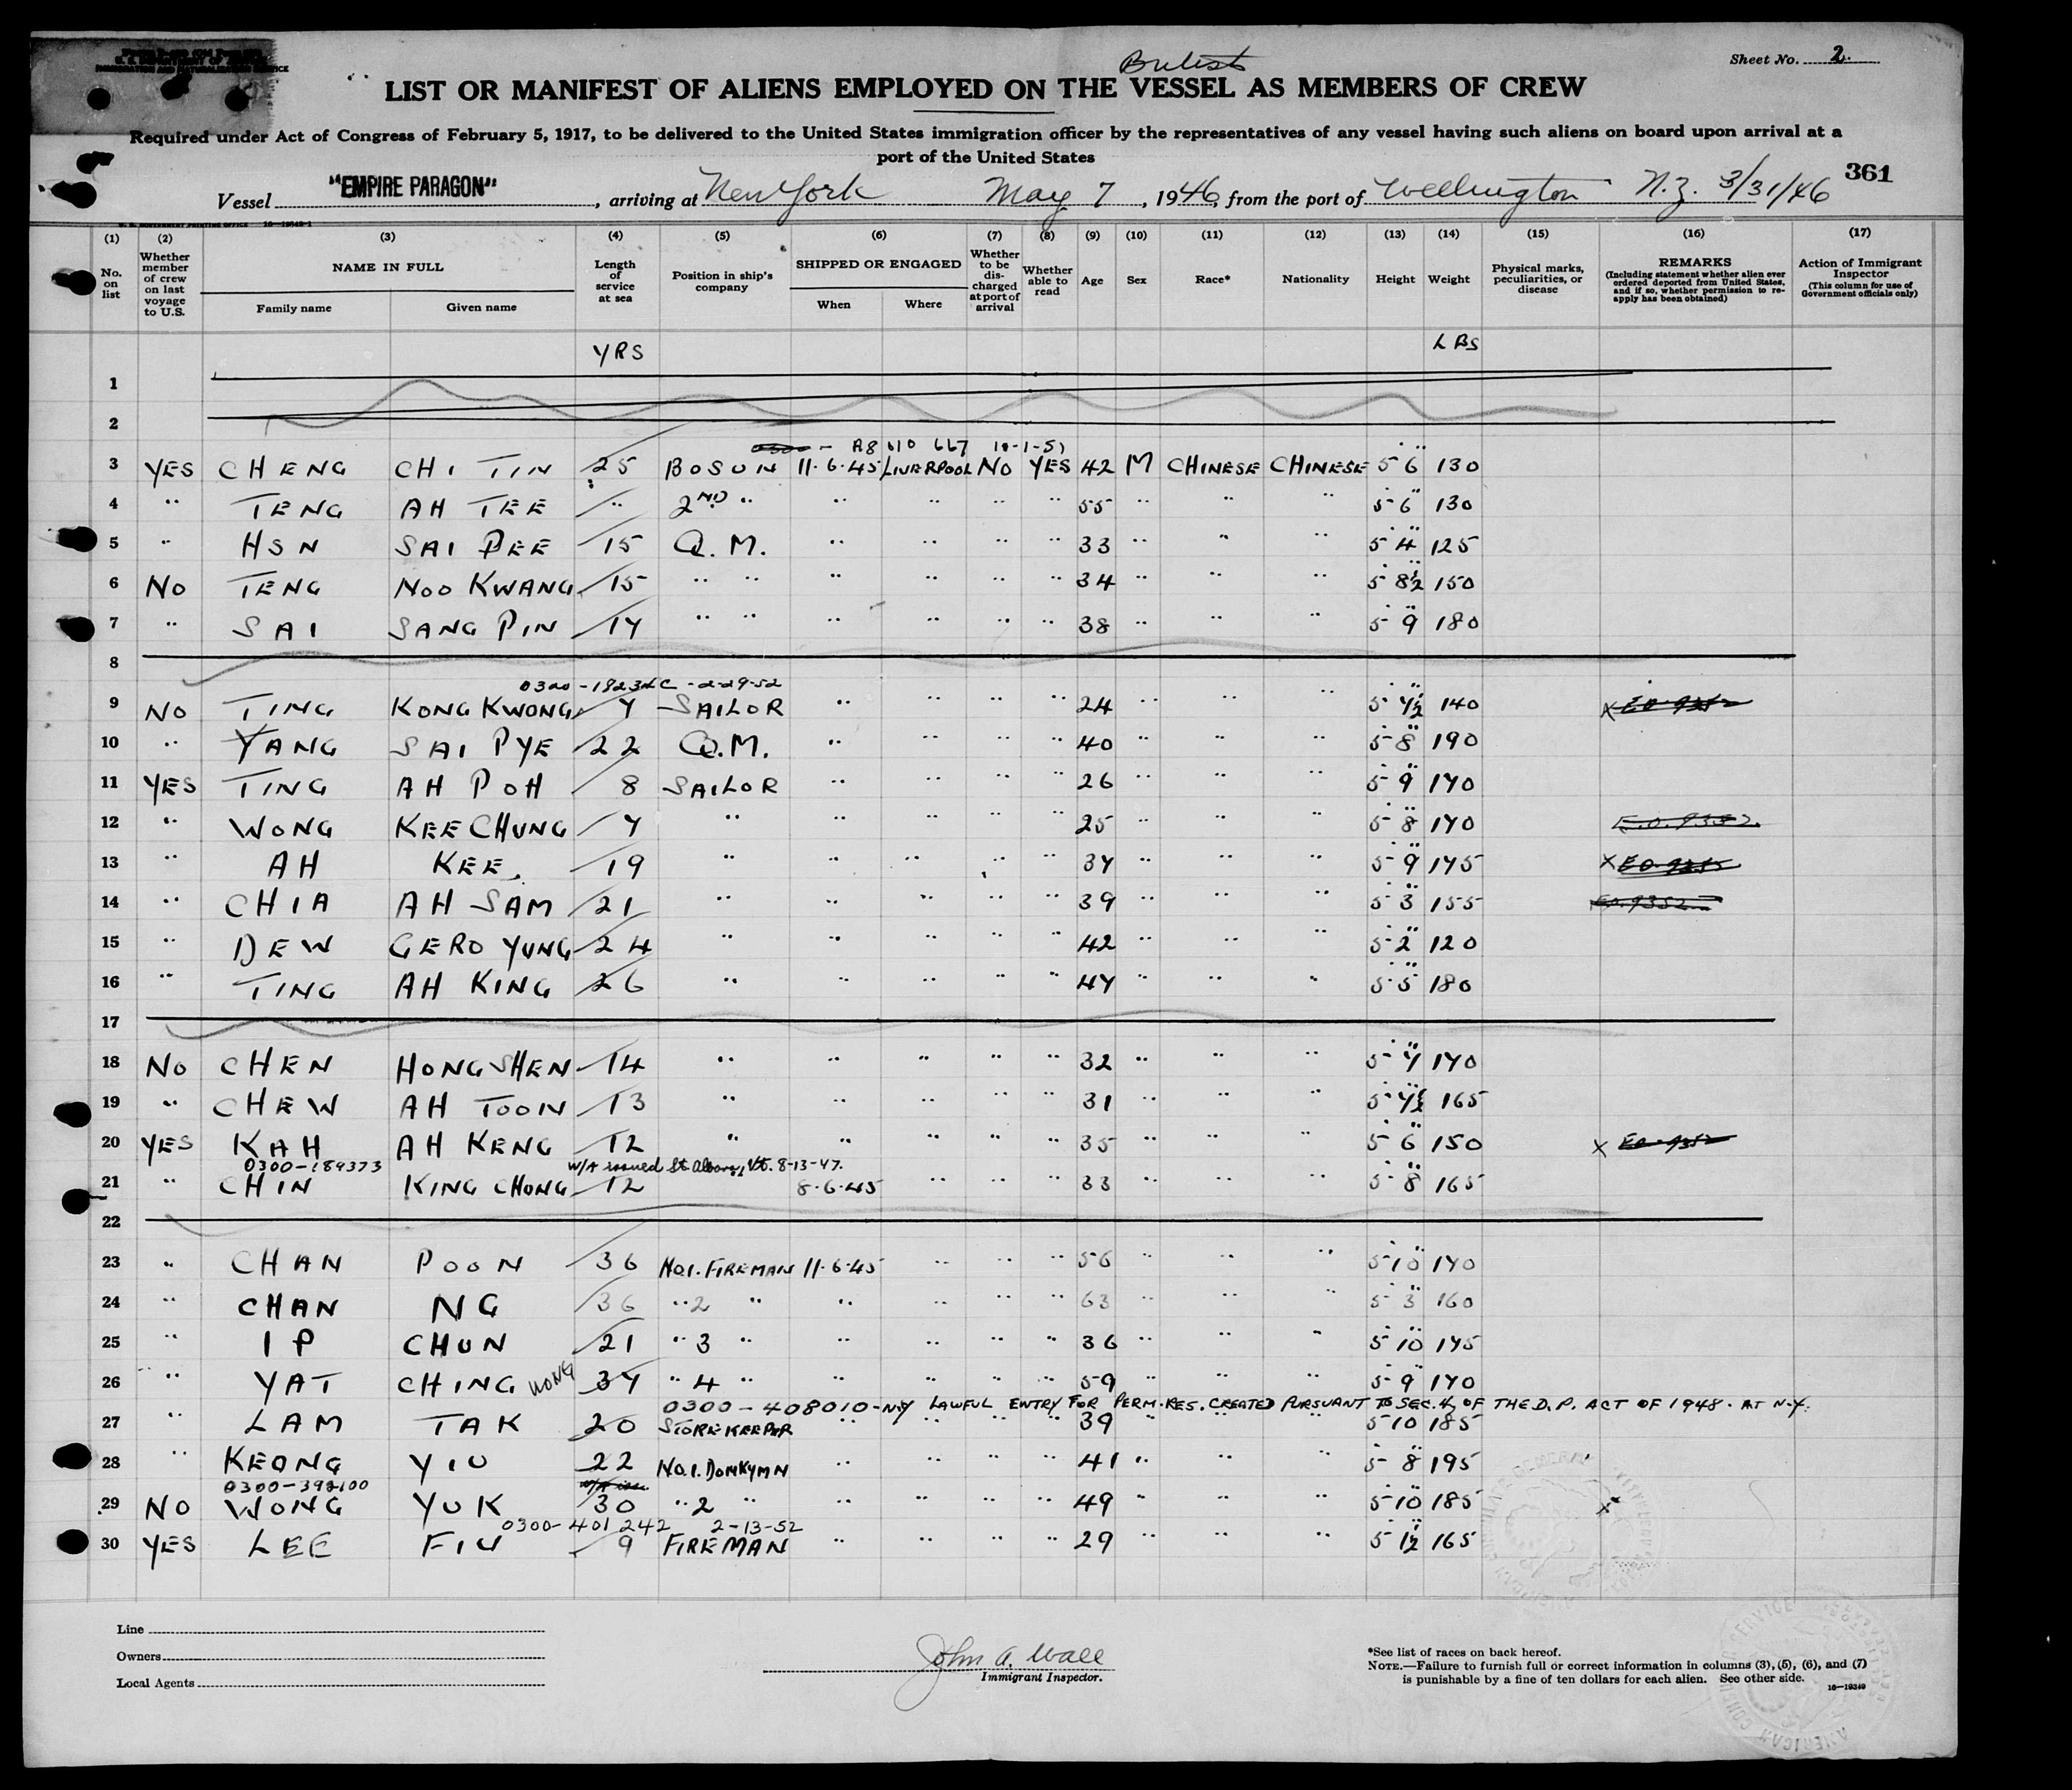 British
Sheet No. 2.
LIST OR MANIFEST OF ALIENS EMPLOYED ON THE VESSEL AS MEMBERS OF CREW
Required under Act of Congress of February 5, 1917, to be delivered to the United States immigration officer by the representatives of any vessel having such aliens on board upon arrival at a
port of the United States
361
Vessel "EMPIRE PARAGON", arriving at New York May 7, 1946, from the port of Wellington N.Z. 3/31/46
(1) (2) (3) (4) (5) (6) (7) (8) (9) (10) (11) (12) (13) (14) (15) (16) (17)
No. on list | Whether member of crew on last voyage to U.S. | NAME IN FULL Family name Given name | Length of service at sea | Position in ship's company | SHIPPED OR ENGAGED When Where | Whether to be discharged at port of arrival | Whether able to read | Age | Sex | Race* | Nationality | Height | Weight | Physical marks, peculiarities, or disease | REMARKS (Including statement whether alien ever ordered deported from United States, and if so, whether permission to reapply has been obtained) | Action of Immigrant Inspector (This column for use of Government officials only)
YRS LBS
1
2
A8 010 667 10-1-51
3 YES CHENG CHI TIN 25 BOSUN 11.6.45 LIVERPOOL NO YES 42 M CHINESE CHINESE 5 6 130
4 " TENG AH TEE " 2ND " " " " " 55 " " " 5 6 130
5 " HSN SAI DEE 15 Q.M. " " " " 33 " " " 5 4 125
6 NO TENG NOO KWANG 15 " " " " " " 34 " " " 5 8½ 150
7 " SAI SANG PIN 17 " " " " " " 38 " " " 5 9 180
8
0300-18232C-2-29-52
9 NO TING KONG KWONG 7 SAILOR " " " " 24 " " " 5 7½ 140 X E.O. 9352
10 " YANG SAI PYE 22 Q.M. " " " " 40 " " " 5 8 190
11 YES TING AH POH 8 SAILOR " " " " 26 " " " 5 9 170
12 " WONG KEE CHUNG 7 " " " " " 25 " " " 5 8 170 E.O. 9352
13 " AH KEE. 19 " " " " " 37 " " " 5 9 175 X E.O. 9352
14 " CHIA AH SAM 21 " " " " " 39 " " " 5 3 155 E.O. 9352
15 " DEW GERO YUNG 24 " " " " " 42 " " " 5 2 120
16 " TING AH KING 26 " " " " " 47 " " " 5 5 180
17
18 NO CHEN HONG SHEN 14 " " " " " 32 " " " 5 7 170
19 " CHEW AH TOON 13 " " " " " 31 " " " 5 7½ 165
20 YES KAH AH KENG 12 " " " " " 35 " " " 5 6 150 X E.O. 9352
0300-189373 W/A issued St. Albans, Vt. 8-13-47.
21 " CHIN KING CHONG 12 8.6.45 " " " 33 " " " 5 8 165
22
23 " CHAN POON 36 NO.1. FIREMAN 11.6.45 " " " 56 " " " 5 10 170
24 " CHAN NG 36 " 2 " " " " " 63 " " " 5 3 160
25 " IP CHUN 21 " 3 " " " " " 36 " " " 5 10 175
26 " YAT CHING WONG 37 " 4 " " " " " 59 " " " 5 9 170
0300-408010-NY LAWFUL ENTRY FOR PERM. RES. CREATED PURSUANT TO SEC. 4 OF THE D.P. ACT OF 1948. AT N.Y.
27 " LAM TAK 20 STOREKEEPER " " " " 39 " " " 5 10 185
28 " KEONG YIU 22 NO.1. DONKYMN " " " " 41 " " " 5 8 195
0300-398100
29 NO WONG YUK 30 " 2 " " " " " 49 " " " 5 10 185 X
0300-401242 2-13-52
30 YES LEE FIU 9 FIREMAN " " " " 29 " " " 5 1½ 165
Line
Owners
Local Agents
John A. Wall
Immigrant Inspector.
*See list of races on back hereof.
NOTE.—Failure to furnish full or correct information in columns (3), (5), (6), and (7)
is punishable by a fine of ten dollars for each alien. See other side.
16—19349